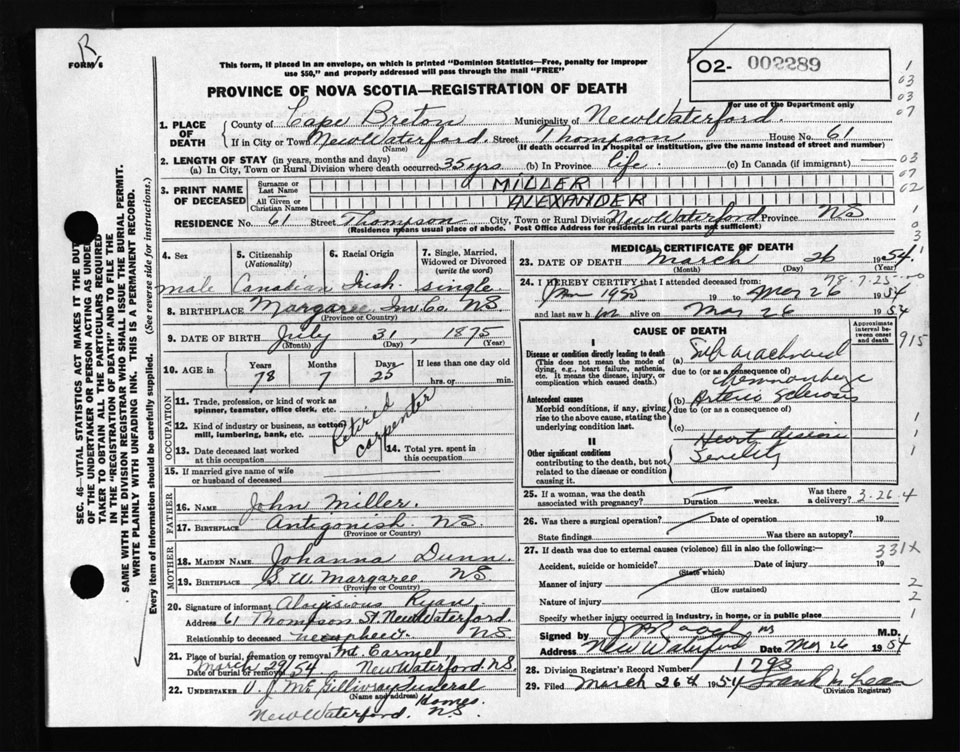 R
FORM 6
This form, if placed in an envelope, on which is printed "Dominion Statistics—Free, penalty for improper
use $50," and properly addressed will pass through the mail "FREE"
02- 002289
For use of the Department only
PROVINCE OF NOVA SCOTIA—REGISTRATION OF DEATH
1. PLACE OF DEATH
County of Cape Breton Municipality of New Waterford.
If in City or Town New Waterford. Street Thompson House No. 61
(Name) (If death occurred in a hospital or institution, give the name instead of street and number)
2. LENGTH OF STAY (in years, months and days)
(a) In City, Town or Rural Division where death occurred 35 yrs (b) In Province life. (c) In Canada (if immigrant)
3. PRINT NAME OF DECEASED
Surname or Last Name MILLER
All Given or Christian Names ALEXANDER
RESIDENCE No. 61 Street Thompson City, Town or Rural Division New Waterford Province NS
(Residence means usual place of abode. Post Office Address for residents in rural parts not sufficient)
4. Sex
male
5. Citizenship (Nationality)
Canadian
6. Racial Origin
Irish.
7. Single, Married, Widowed or Divorced (write the word)
single
8. BIRTHPLACE Margaree Inv. Co. NS.
(Province or Country)
9. DATE OF BIRTH July 31, 1875
(Month) (Day) (Year)
10. AGE in
Years Months Days If less than one day old
78 7 25 hrs. or min.
OCCUPATION
11. Trade, profession, or kind of work as
spinner, teamster, office clerk, etc.
12. Kind of industry or business, as cotton
mill, lumbering, bank, etc.
Retired carpenter
13. Date deceased last worked at this occupation
14. Total yrs. spent in this occupation
15. If married give name of wife
or husband of deceased
FATHER
16. NAME John Miller.
17. BIRTHPLACE Antigonish NS.
(Province or Country)
MOTHER
18. MAIDEN NAME Johanna Dunn.
19. BIRTHPLACE S. W. Margaree NS.
(Province or Country)
20. Signature of informant Aloysious Ryan,
Address 61 Thompson St. New Waterford.
Relationship to deceased NS.
21. Place of burial, cremation or removal Mt. Carmel
Date of burial or removal March 29/54 New Waterford. N.S.
22. UNDERTAKER J. McGillivray Funeral
(Name and address) Homes.
New Waterford. NS.
MEDICAL CERTIFICATE OF DEATH
23. DATE OF DEATH March 26 1954.
(Month) (Day) (Year)
78-7-25
24. I HEREBY CERTIFY that I attended deceased from:
Jan 1950 19 to May 26 1954
and last saw h alive on Mar 26 1954
CAUSE OF DEATH
Approximate interval between onset and death
I
Disease or condition directly leading to death
(This does not mean the mode of dying, e.g., heart failure, asthenia, etc. It means the disease, injury, or complication which caused death.)
(a) Subarachnoid
due to (or as a consequence of)
hemmorhage
Antecedent causes
Morbid conditions, if any, giving rise to the above cause, stating the underlying condition last.
(b) Arterio Sclerosis
due to (or as a consequence of)
(c)
II
Other significant conditions
contributing to the death, but not related to the disease or condition causing it.
Heart disease
Senility
25. If a woman, was the death associated with pregnancy? Duration weeks. Was there a delivery? 3-26-4
26. Was there a surgical operation? Date of operation 19
State findings Was there an autopsy?
27. If death was due to external causes (violence) fill in also the following:—
331X
Accident, suicide or homicide? Date of injury 19
(State which)
Manner of injury
(How sustained)
Nature of injury
Specify whether injury occurred in industry, in home, or in public place
Signed by M.D.
Address New Waterford May 26 1954
28. Division Registrar's Record Number 1793
29. Filed March 26th 1954 Frank McLean
(Division Registrar)
SEC. 46—VITAL STATISTICS ACT MAKES IT THE DUTY
OF THE UNDERTAKER OR PERSON ACTING AS UNDER-
TAKER TO OBTAIN ALL THE PARTICULARS REQUIRED
IN THE "REGISTRATION OF DEATH" AND TO FILE THE
SAME WITH THE DIVISION REGISTRAR WHO SHALL ISSUE THE BURIAL PERMIT.
WRITE PLAINLY WITH UNFADING INK. THIS IS A PERMANENT RECORD.
Every item of Information should be carefully supplied. (See reverse side for instructions.)
1
03
03
07
03
07
02
1
0
3
915
1
1
1
2
2
1